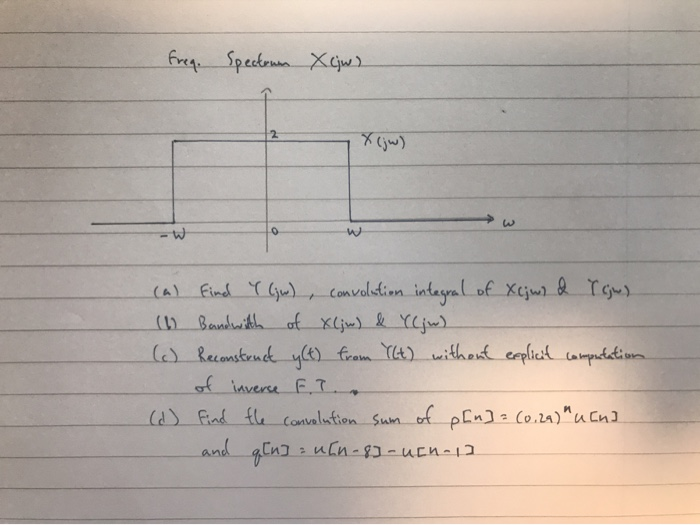 Freq. Spectrum X(jw)
2
X(jw)
-W
0
W
w
(a) Find Y(jw), convolution integral of X(jw) & Y(jw)
(b) Bandwith of X(jw) & Y(jw)
(c) Reconstruct y(t) from Y(t) without explicit computation
of inverse F.T.
(d) Find the convolution sum of p[n] = (0.29)^n u[n]
and q[n] = u[n-8] - u[n-1]